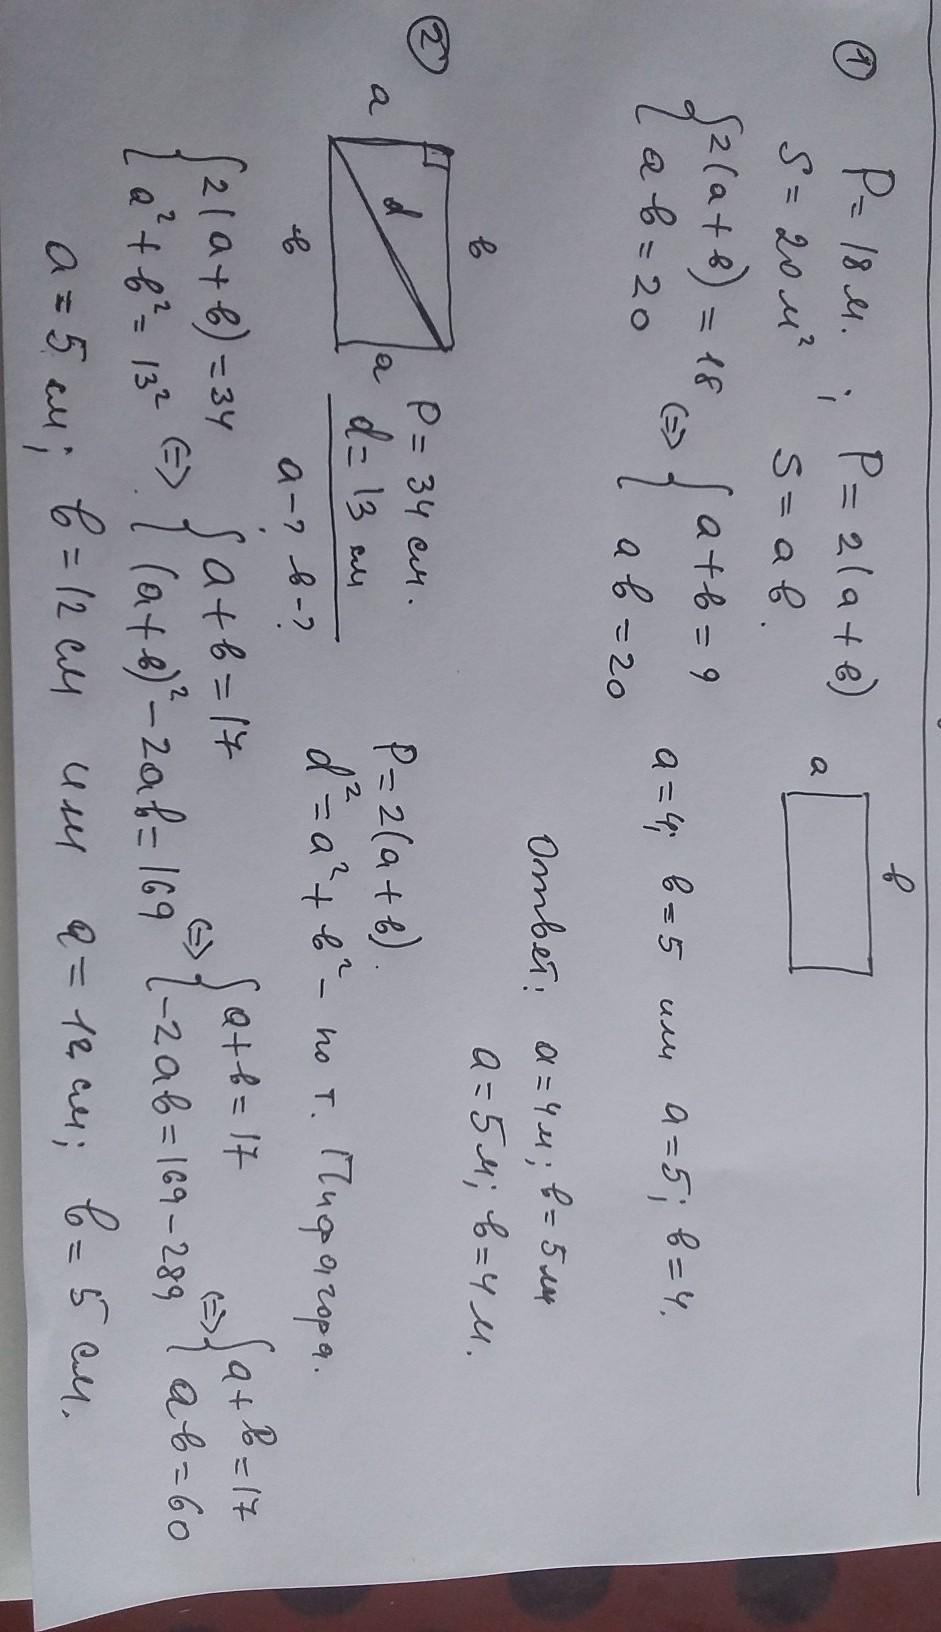 ① P = 18 м. ; P = 2(a + b)
S = 20 м² S = ab.
a b
{ 2(a + b) = 18 <=> { a + b = 9
{ ab = 20 { ab = 20
a = 4; b = 5 или a = 5; b = 4.
Ответ: a = 4 м; b = 5 м
a = 5 м; b = 4 м.
② a b d b a
P = 34 см.
d = 13 см
a - ? b - ?
P = 2(a + b).
d² = a² + b² - по т. Пифагора.
{ 2(a + b) = 34 <=> { a + b = 17 <=> { a + b = 17 <=> { a + b = 17
{ a² + b² = 13² { (a + b)² - 2ab = 169 { -2ab = 169 - 289 { ab = 60
a = 5 см; b = 12 см или a = 12 см; b = 5 см.